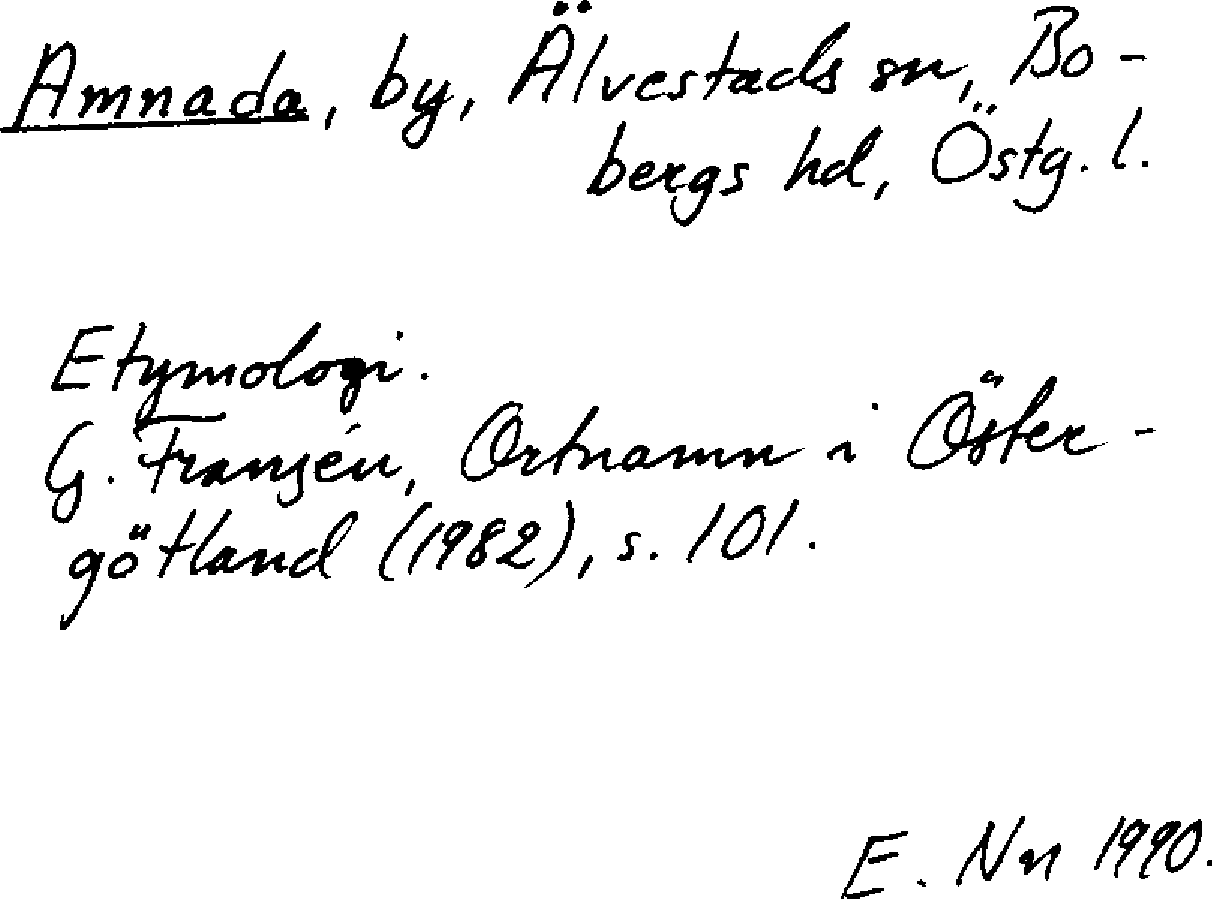 Amnada, by, Älvestads sn, Bo-
bergs hd, Östg. l.
Etymologi.
G. Franzén, Ortnamn i Öster-
götland (1982), s. 101.
E. Nn 1990.